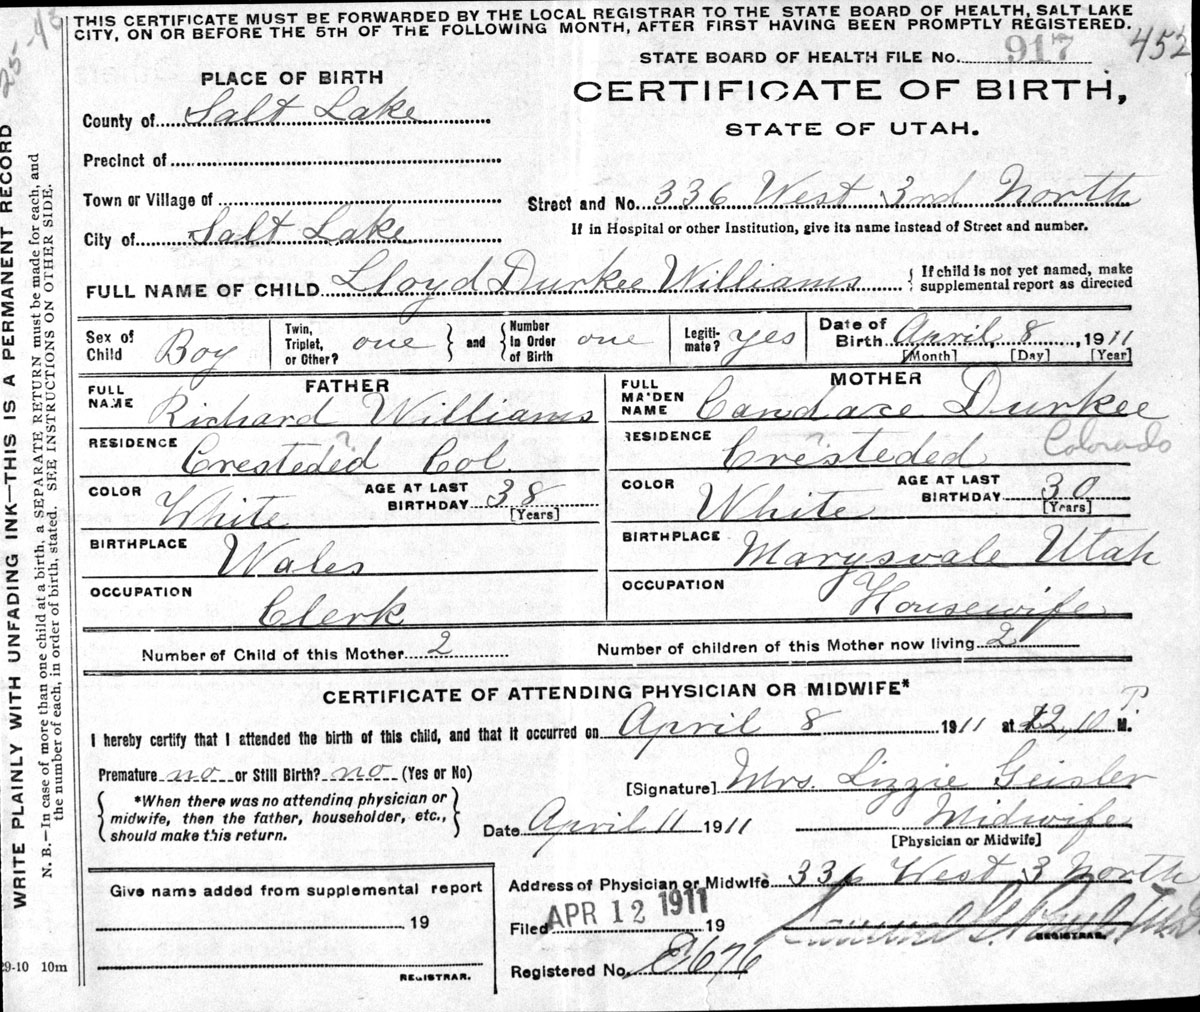 THIS CERTIFICATE MUST BE FORWARDED BY THE LOCAL REGISTRAR TO THE STATE BOARD OF HEALTH, SALT LAKE
CITY, ON OR BEFORE THE 5TH OF THE FOLLOWING MONTH, AFTER FIRST HAVING BEEN PROMPTLY REGISTERED.
STATE BOARD OF HEALTH FILE No. 917 452
PLACE OF BIRTH
CERTIFICATE OF BIRTH,
STATE OF UTAH.
County of Salt Lake
Precinct of
Town or Village of
Street and No. 336 West 3rd North
City of Salt Lake
If in Hospital or other Institution, give its name instead of Street and number.
FULL NAME OF CHILD Lloyd Durkee Williams
{ If child is not yet named, make
supplemental report as directed
Sex of Child Boy
Twin, Triplet, or Other? one } and { Number In Order of Birth one
Legitimate? yes
Date of Birth April 8, 1911
[Month] [Day] [Year]
FATHER
MOTHER
FULL NAME Richard Williams
FULL MAIDEN NAME Candace Durkee
RESIDENCE Cresteded Col
RESIDENCE Cresteded Colorado
COLOR White AGE AT LAST BIRTHDAY 38 [Years]
COLOR White AGE AT LAST BIRTHDAY 30 [Years]
BIRTHPLACE Wales
BIRTHPLACE Marysvale Utah
OCCUPATION Clerk
OCCUPATION Housewife
Number of Child of this Mother 2
Number of children of this Mother now living 2
CERTIFICATE OF ATTENDING PHYSICIAN OR MIDWIFE*
I hereby certify that I attended the birth of this child, and that it occurred on April 8 1911 at 12,10 P. M.
Premature no or Still Birth? no (Yes or No)
[Signature] Mrs. Lizzie Geisler
{ *When there was no attending physician or
midwife, then the father, householder, etc.,
should make this return. }
Date April 11 1911
Midwife
[Physician or Midwife]
Give name added from supplemental report
19
REGISTRAR.
Address of Physician or Midwife 336 West 3 North
Filed APR 12 1911 19
REGISTRAR.
Registered No. 2676
29-10 10m
WRITE PLAINLY WITH UNFADING INK—THIS IS A PERMANENT RECORD
N. B.—In case of more than one child at a birth, a SEPARATE RETURN must be made for each, and
the number of each, in order of birth, stated. SEE INSTRUCTIONS ON OTHER SIDE.